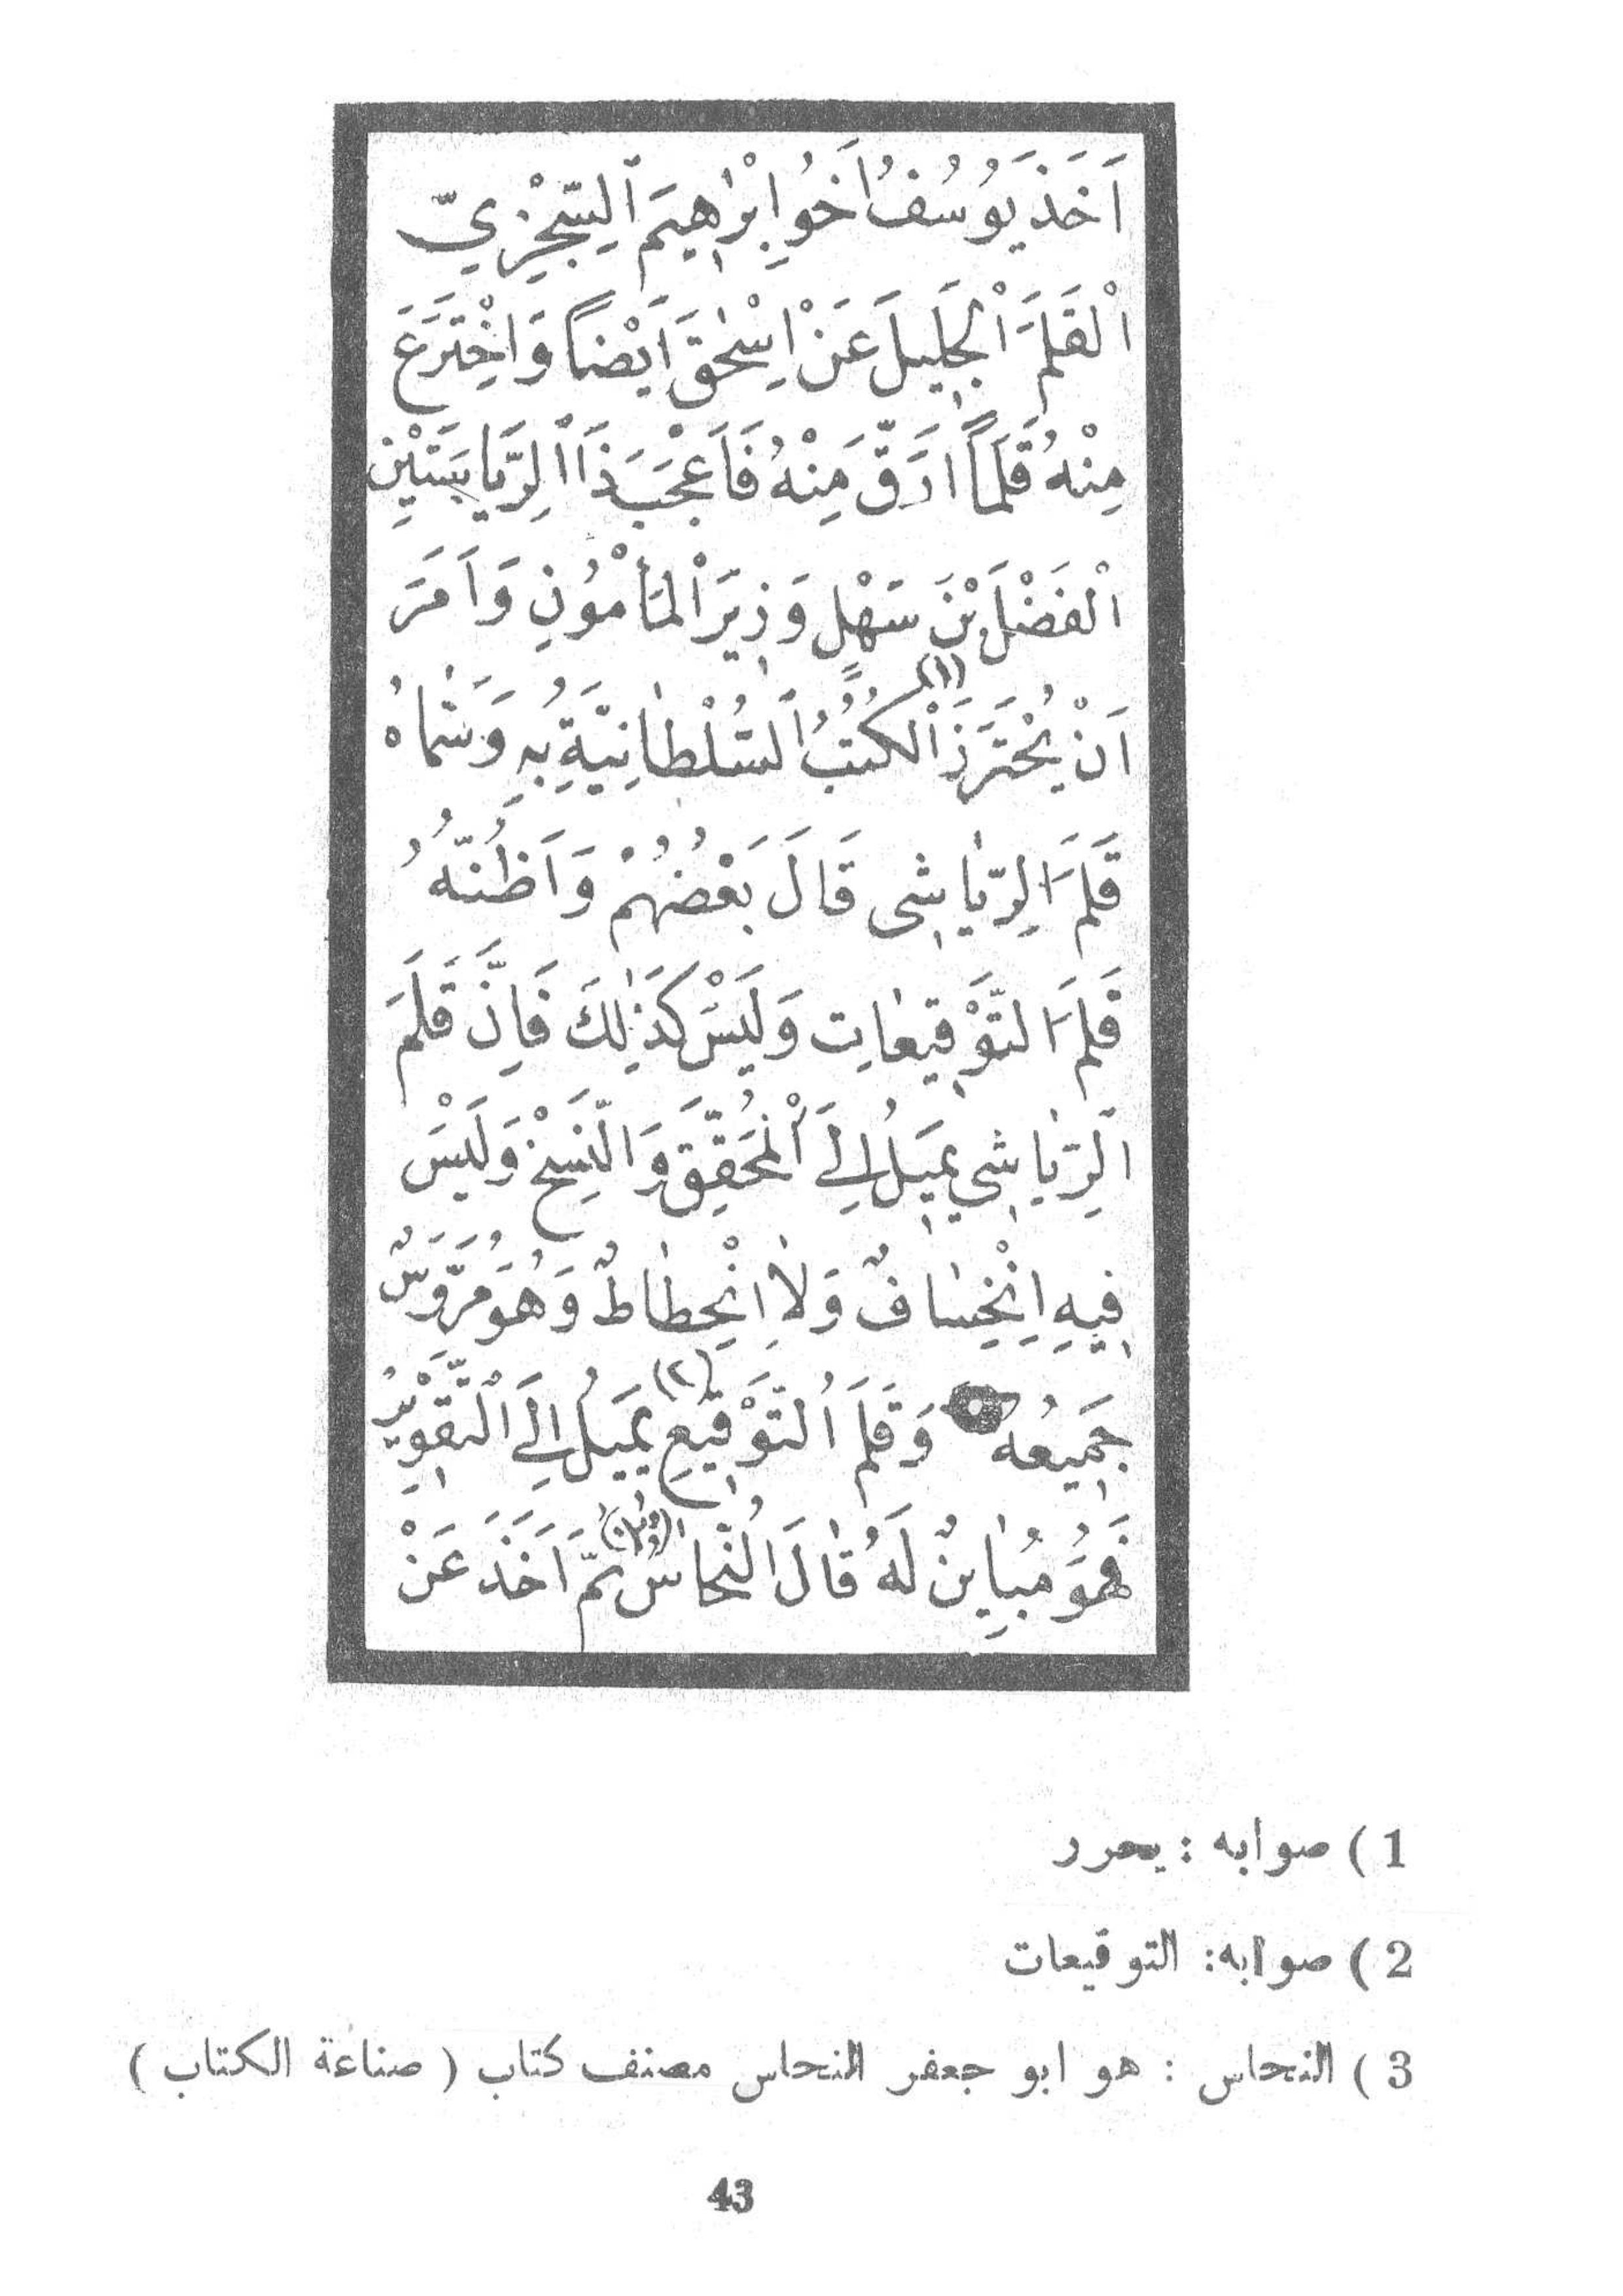 اَخَذَ يَوُسُفُ اَخُو اِبْرٰاهِيَم اَلسِّجْزِيّ
اْلقَلَمَ اْلجَلِيلَ عَنْ اِسْحٰقَ اَيْضاً وَاخْتَرَعَ
مِنْهُ قَلَماً اَدَقَّ مِنْهُ فَاَعْجَبَ ذَا الرِّيَاسَتَيْنِ
اْلفَضْلَ بْنَ سَهْلٍ وَزِيَر اْلمَأْمُوُنِ وَاَمَرَ
اَنْ يُحْتَرَزَ (١) اْلكُتُبُ السُّلْطٰانِيَّةِ بِهِ وَسَمّٰاهُ
قَلَمَ الرِّيٰاشى قَالَ بَعْضُهُمْ وَاَظُنّهُ
قَلَمَ التَّوْقيعٰاتِ وَلَيْسَ كَذٰلِكَ فَاِنَّ قَلَمَ
الرِّيٰاشي يَميلُ اِلَى اْلمُحَقّقِ وَالنّسْخِ وَلَيْسَ
فِيهِ اِنْخِسٰافٌ وَلاٰ اِنْحِطٰاطٌ وَهُوَ مُرَوَّسٌ
جَمِيعُه وَقَلَمَ التَّوْقيعِ (٢) يَميلُ اِلَى التَّقْوِيرِ
فَهُوَ مُبٰايِنٌ لَهُ قٰالَ النّحٰاسُ ثمَّ اَخَذَ عَنْ
1 ) صوابه : يحرر
2 ) صوابه: التوقيعات
3 ) النحاس : هو ابو جعفر النحاس مصنف كتاب ( صناعة الكتاب )
43